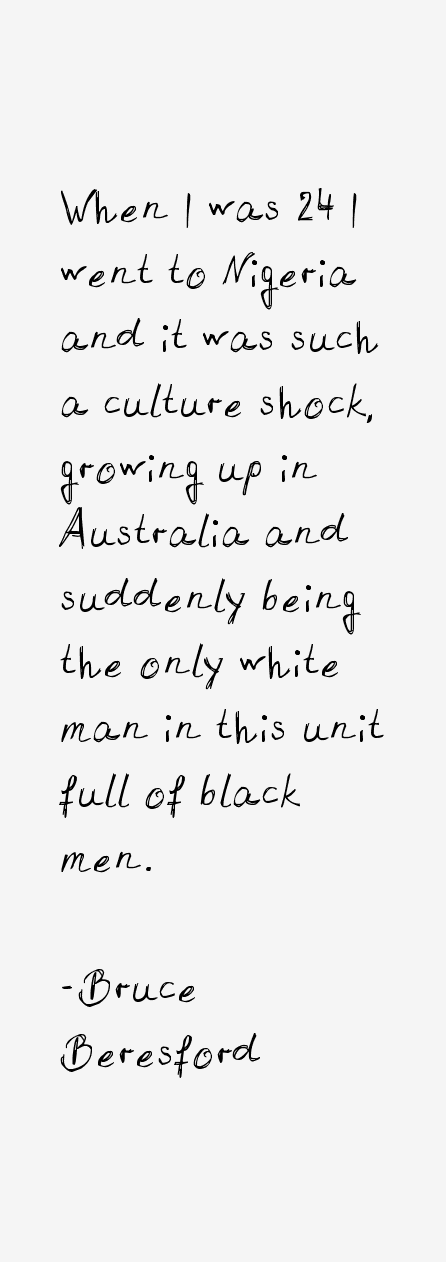 When I was 24 I
went to Nigeria
and it was such
a culture shock,
growing up in
Australia and
suddenly being
the only white
man in this unit
full of black
men.
-Bruce
Beresford